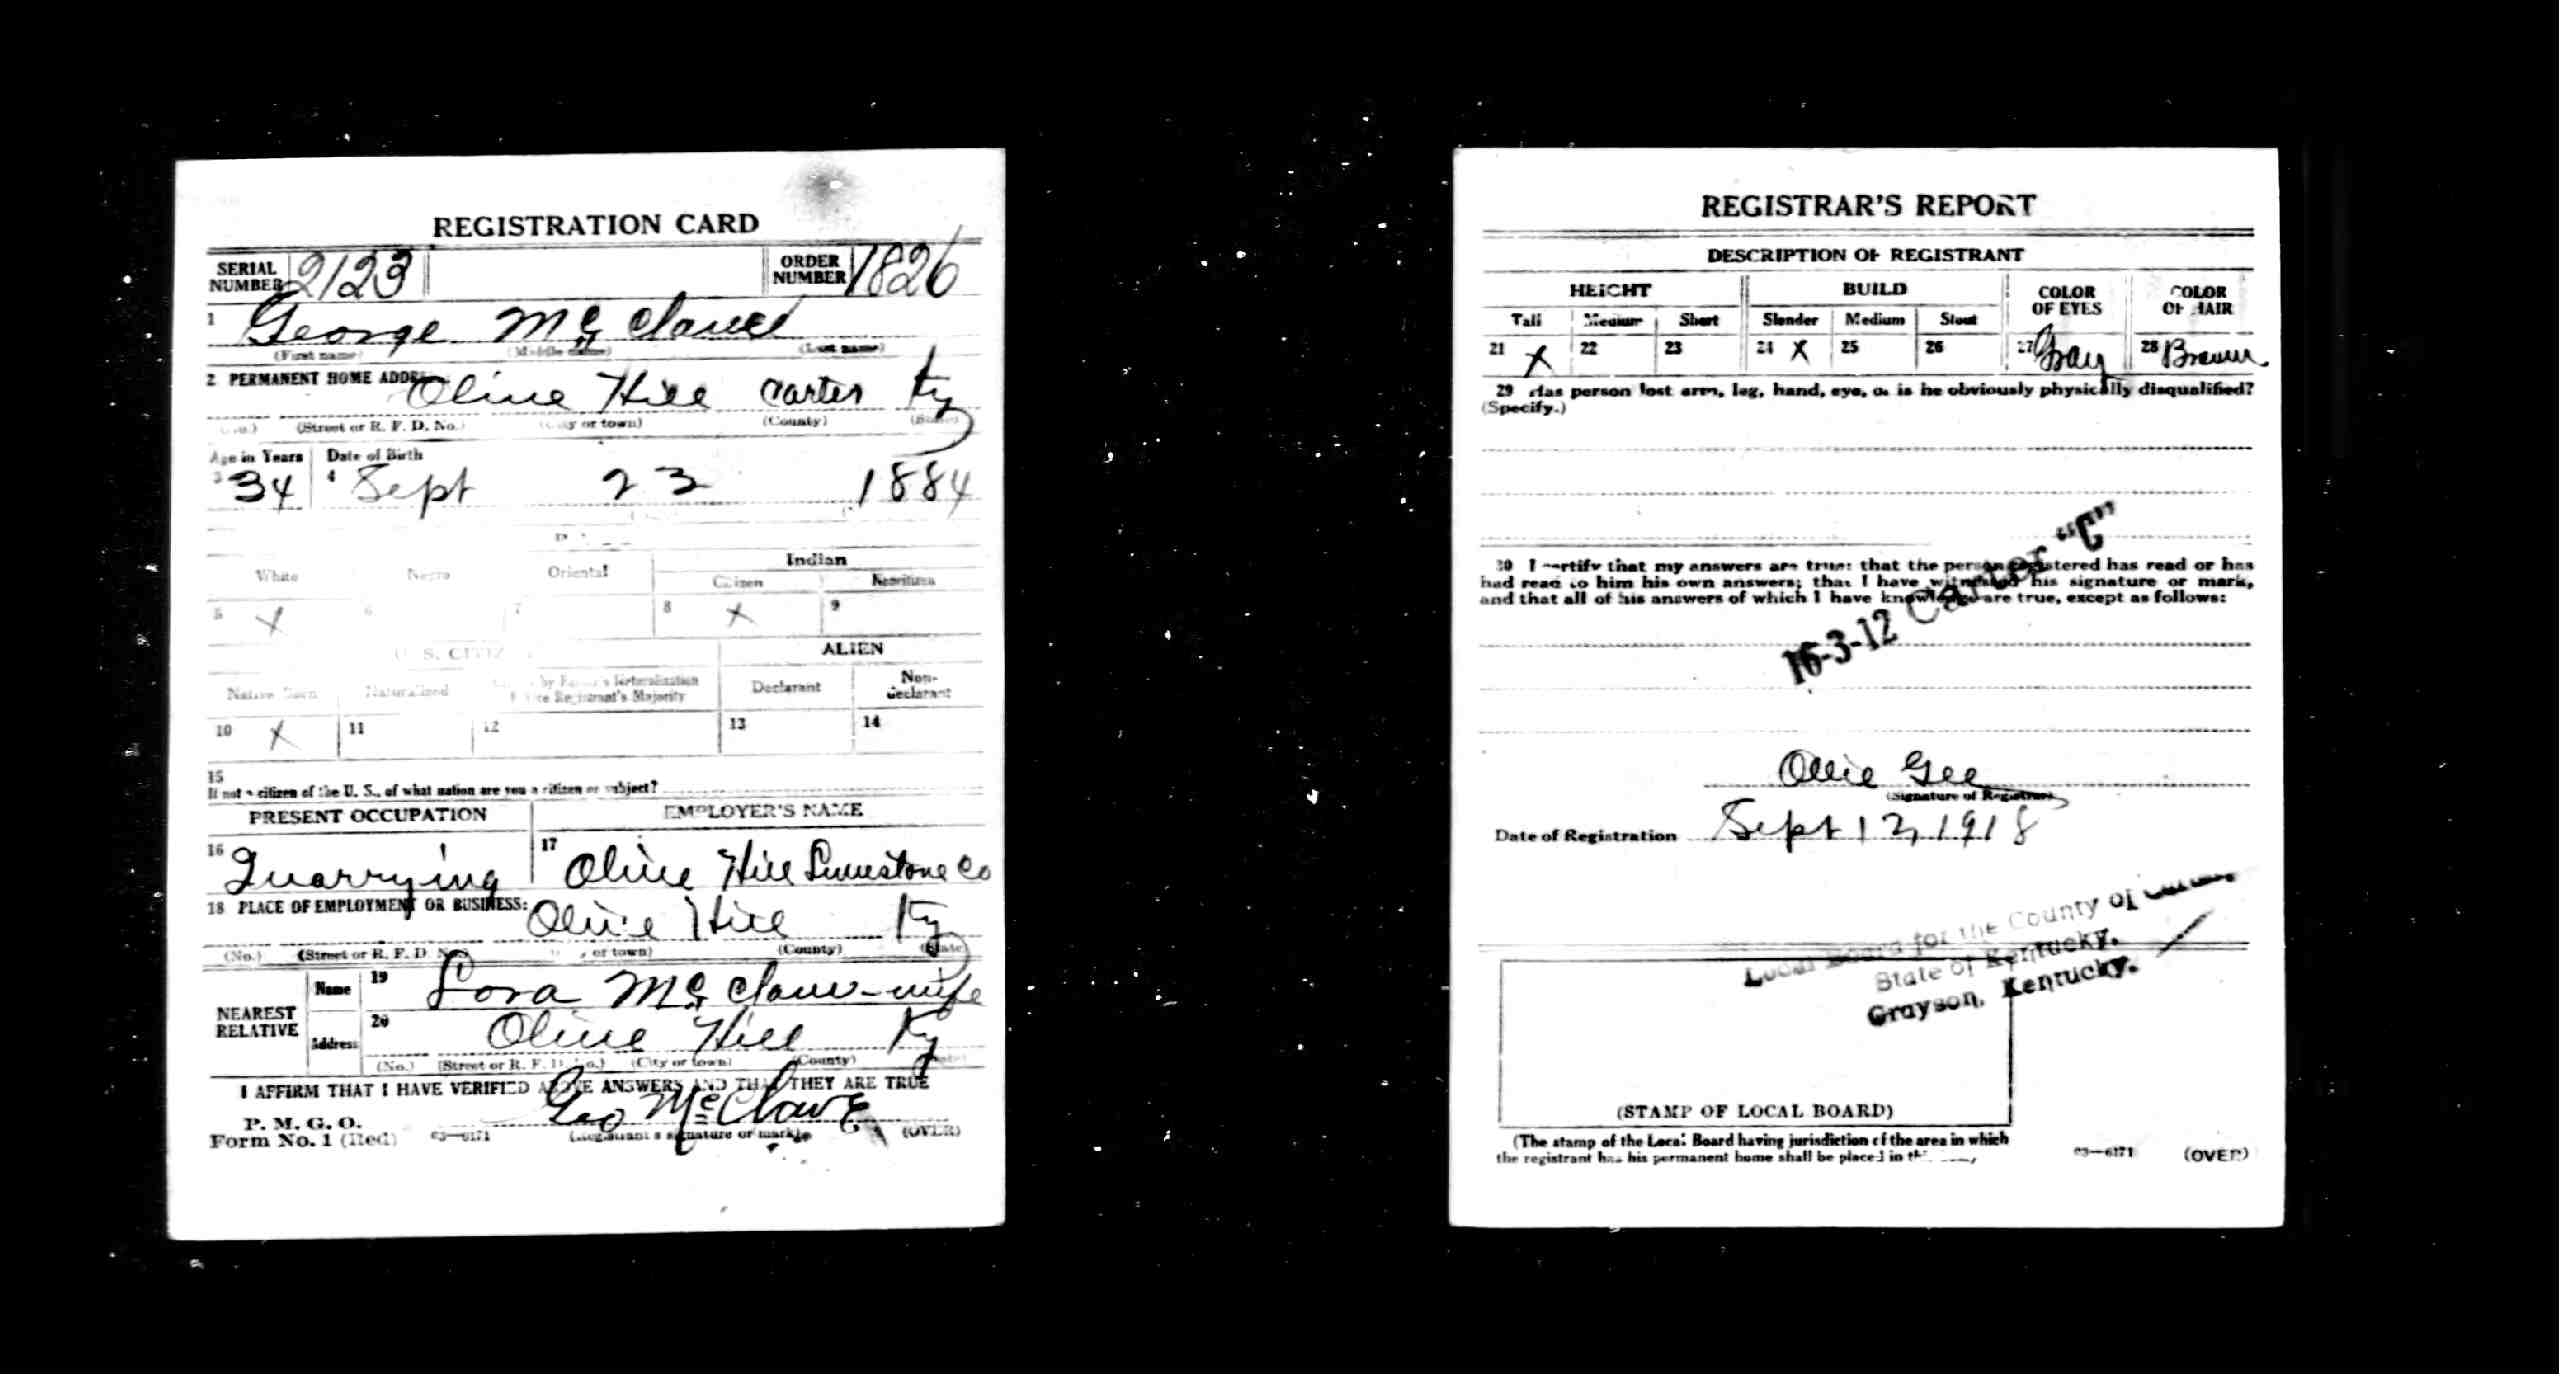 REGISTRATION CARD
SERIAL NUMBER 2123 ORDER NUMBER 1826
1 George McClave
(First name) (Middle name) (Last name)
2 PERMANENT HOME ADDR Olive Hill Carter Ky
(Street or R. F. D. No.) (City or town) (County) (State)
Age in Years Date of Birth
3 34 4 Sept 23 1884
Indian
White Negro Oriental Citizen Noncitizen
5 X 6 7 8 X 9
U. S. CITIZ ALIEN
Native Born Naturalized by Father's Naturalization Before Registrant's Majority Declarant Non-declarant
10 X 11 12 13 14
15
If not a citizen of the U. S., of what nation are you a citizen or subject?
PRESENT OCCUPATION EMPLOYER'S NAME
16 Quarrying 17 Olive Hill Limestone Co
18 PLACE OF EMPLOYMENT OR BUSINESS: Olive Hill Ky
(No.) (Street or R. F. D. No.) or town) (County) (State)
NEAREST RELATIVE Name 19 Lora McClave-wife
Address 20 Olive Hill Ky
(No.) (Street or R. F. D. No.) (City or town) (County) (State)
I AFFIRM THAT I HAVE VERIFIED ABOVE ANSWERS AND THAT THEY ARE TRUE
P. M. G. O.
Form No. 1 (Red) 03—6171 Geo McClave
(Registrant's signature or mark) (OVER)
REGISTRAR'S REPORT
DESCRIPTION OF REGISTRANT
HEIGHT BUILD COLOR OF EYES COLOR OF HAIR
Tall Medium Short Slender Medium Stout
21 X 22 23 24 X 25 26 27 Gray 28 Brown
29 Has person lost arm, leg, hand, eye, or is he obviously physically disqualified?
(Specify.)
30 I certify that my answers are true: that the person registered has read or has
had read to him his own answers; that I have witnessed his signature or mark,
and that all of his answers of which I have knowledge are true, except as follows:
16-3-12 Carter "C"
Ollie Gee
(Signature of Registrar)
Date of Registration Sept 12, 1918
Local Board for the County of Carter,
State of Kentucky.
Grayson, Kentucky.
(STAMP OF LOCAL BOARD)
(The stamp of the Local Board having jurisdiction of the area in which
the registrant has his permanent home shall be placed in
03—6171 (OVER)